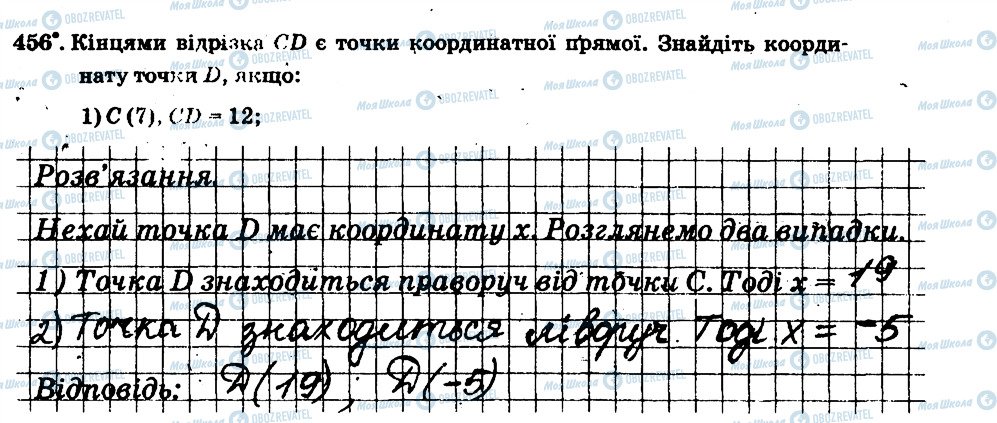 456°. Кінцями відрізка CD є точки координатної прямої. Знайдіть коорди-
нату точки D, якщо:
1) C (7), CD = 12;
Розв'язання.
Нехай точка D має координату x. Розглянемо два випадки.
1) Точка D знаходиться праворуч від точки C. Тоді x = 19
2) Точка D знаходиться ліворуч. Тоді x = -5
Відповідь: D(19); D(-5)